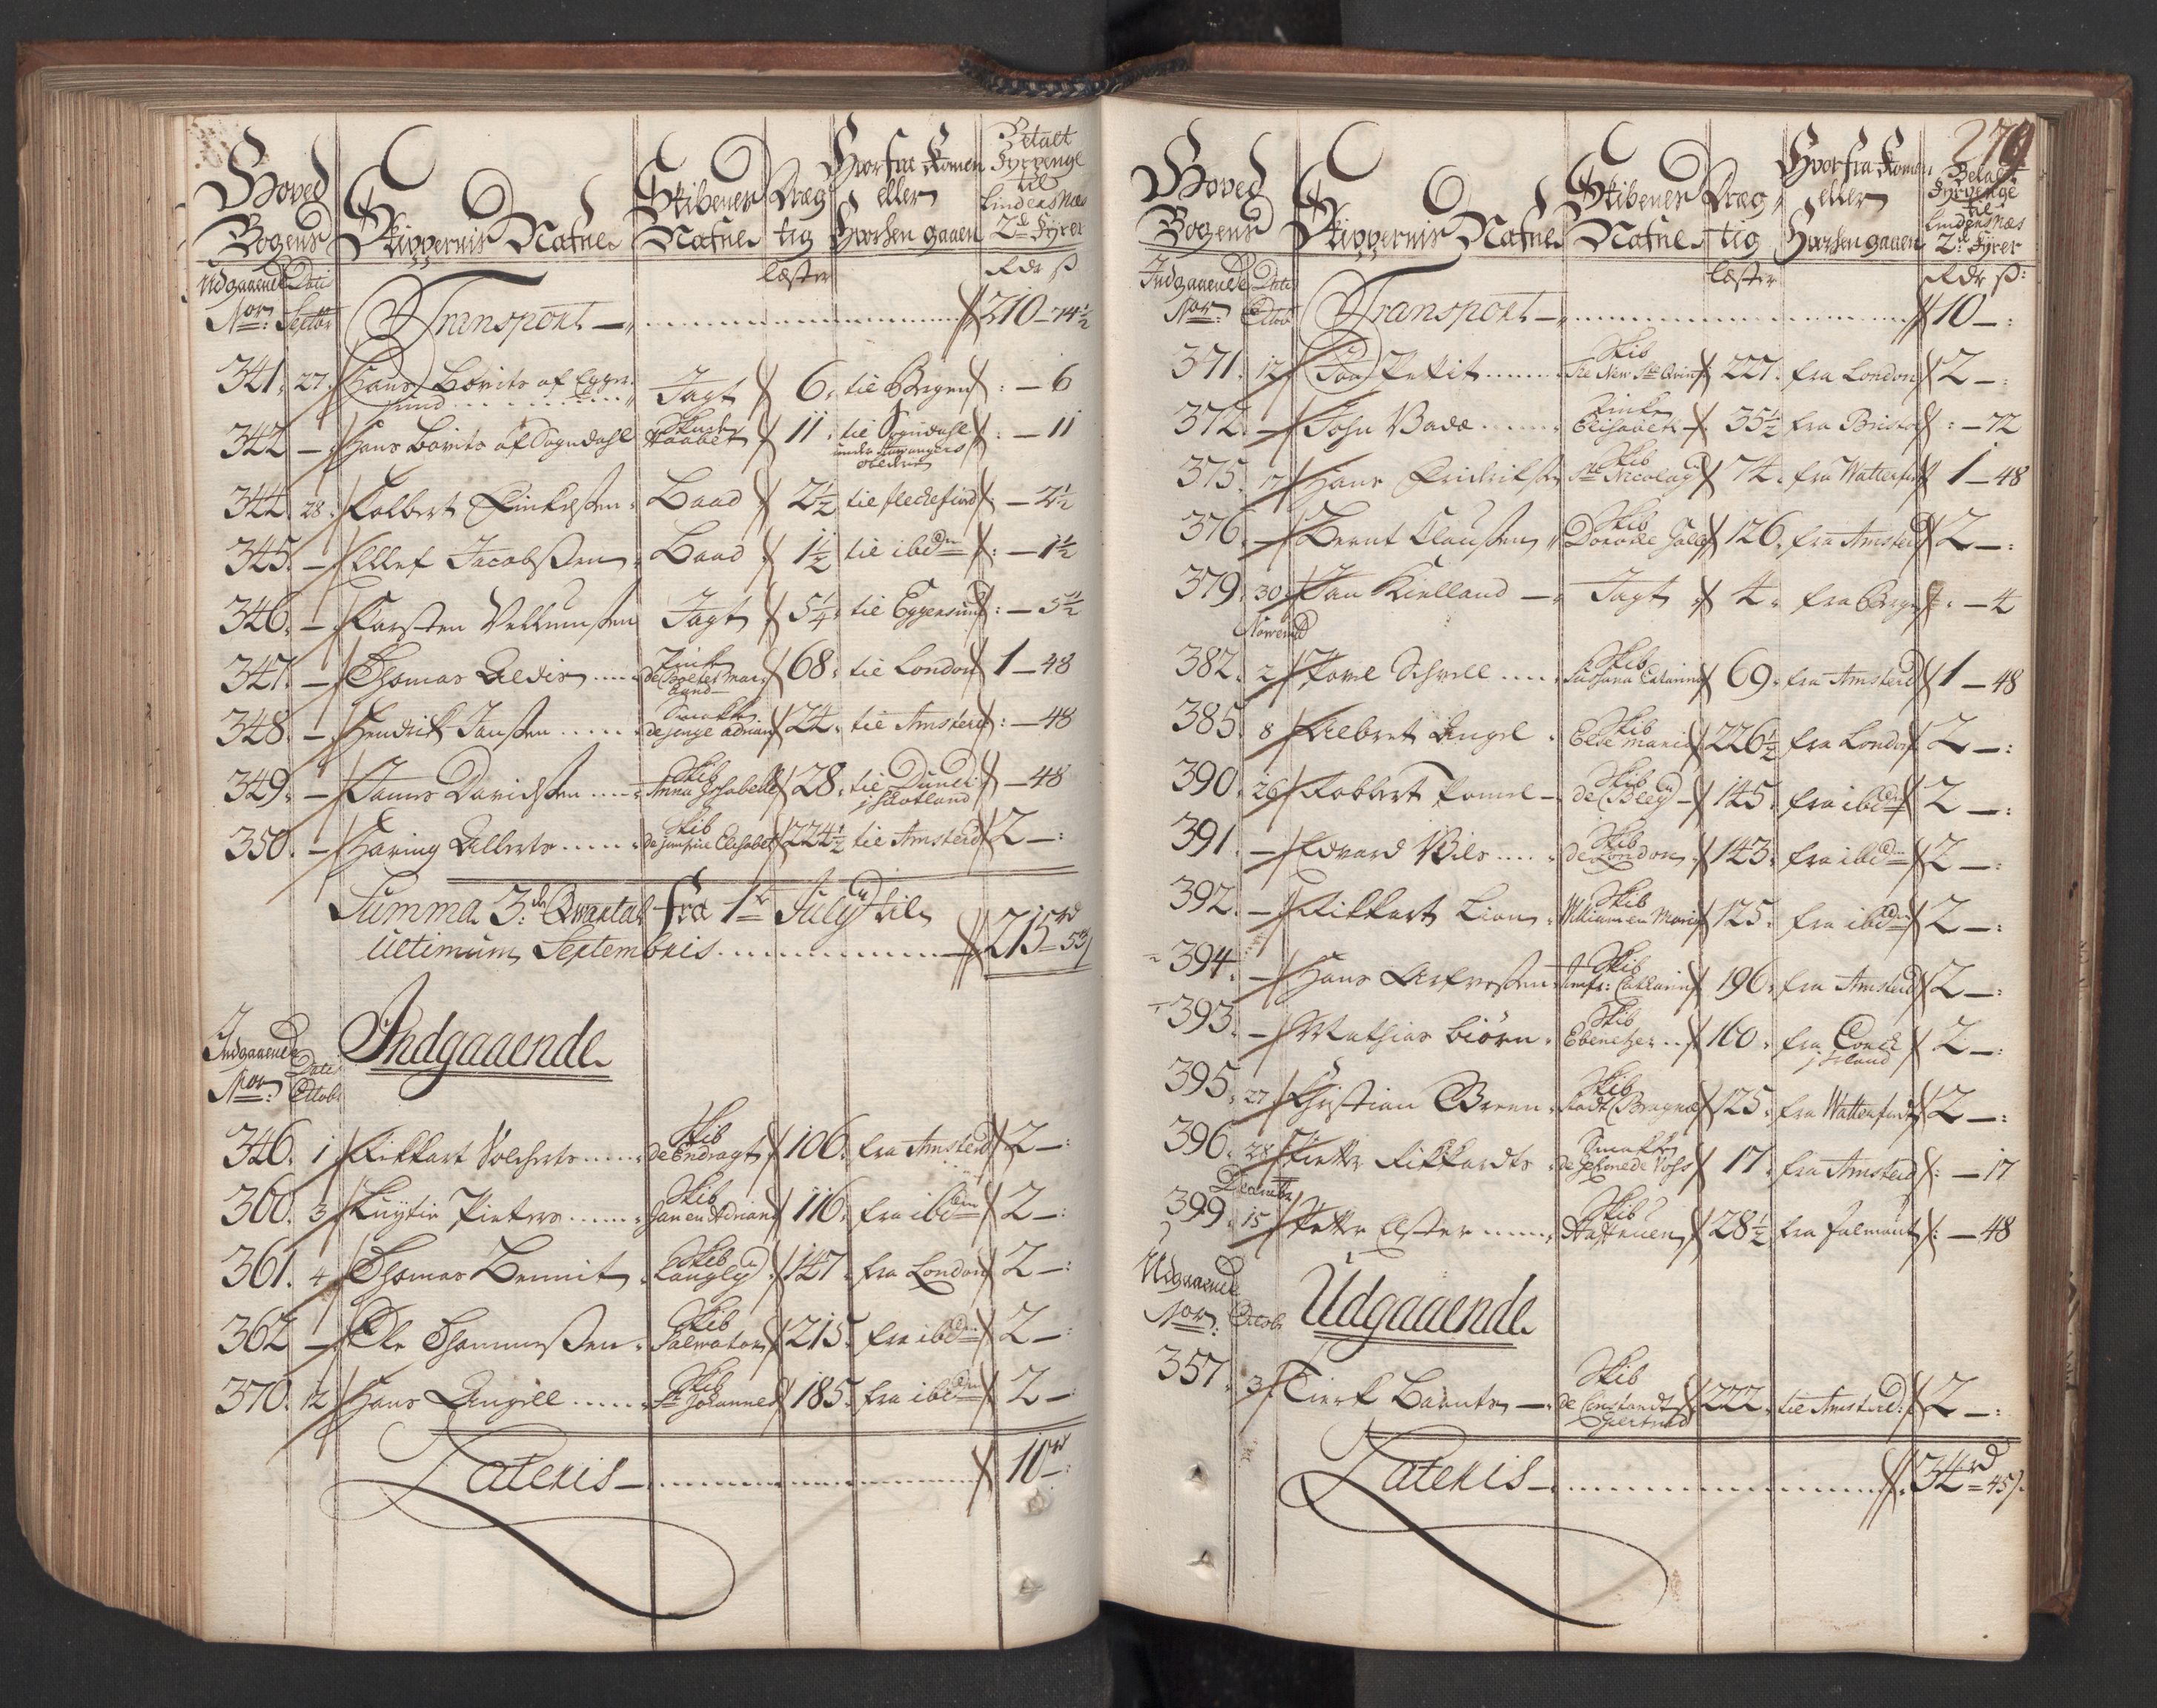 Hoved Bogens Skippernis Nafne Skibenes Nafne Dræg tig Hvorfra komen eller Hvorhen gaaen Betalt Fyrpenge til Lindesnæs 2de Fyrer
Udgaaende Dati læster Rdr ß
Nor: Septbr Transport 210 — 74½
341. 27. Hans Lovits af Egger sund Jagt 6. til Bergen : — 6
342 — Hans Lovits af Sogndahl 11. til Sogndahl under : — 11
344. 28. Baad 2½ til fleckefiord : — 2½
345. — Ellef Jacobsen Baad 1½ til ibdm : — 1½
346. — Karsten Jagt 5¼ til Eggersund : — 5½
347. — Thomas 68. til London 1 — 48
348. — Hendrik Jansen Smakke de jonge Adrian 24. til Amsterd : — 48
349. — James Davidsen Skib Anna Isabelle 28. til Dundi i Skotland — 48
350. — Haring Alberts Skib de Elisabet 224½ til Amsterd 2 — :
Summa 3de Qvartal fra 1te July til
ultimum Septembris 215rd — 53
Indgaaende Dati
Nor: Octobr Indgaaende
346. 1 Rikkart Volcherts Skib de Endragt 106. fra Amsterd 2 — :
360. 3 Luytie Pieters Skib Jan en Adrian 116. fra ibdm 2 — :
361. 4 Thomas Bennit Skib Langley 147. fra London 2 — :
362 — Ole Thommesen Skib Salvator 215. fra ibdm 2 — :
370. 12 Hans Angell Skib St Johannes 185. fra ibdm 2 —
Lateris 10rd — :
279
Hoved Bogens Skippernis Nafne Skibenes Nafne Dræg tig Hvorfra komen eller Hvorhen gaaen Betalt Fyrpenge til Lindesnæs 2de Fyrer
Indgaaende Dati læster Rdr ß:
Nor: Octob Transport 10 — :
371. 12 Jan Petit Skib 227. fra London 2 — :
372. — John Bade Pinke Elisabeth 35½ fra Bristol : — 72
375. 17 Hans Fridriksen Skib St Nicolay 74. fra Watterford 1 — 48
376. — Bernt Clausen Skib 126. fra Amsterd 2 — :
379. 30 Jan Kielland Jagt 4. fra Bergen : — 4
Novemb
382. 2 Povel Schvell Skib Susanna Catarina 69. fra Amsterd 1 — 48
385. 8 Albret Angel Skib Else Maria 226½ fra London 2 — :
390. 26 Robbert Skib de Bley 145. fra ibdm 2 — :
391. — Edvard Wils Skib de London 143. fra ibdm 2 — :
392. — Rikkart Lion Skib William en Maria 125. fra ibdm 2 — :
394. — Hans Skib Jomfr: Catharina 196. fra Amsterd 2 — :
393. — Mathias Biørn Skib Ebenetzer 160. fra Corck i Irland 2 — :
395. 27 Christian Green Skib Stadt Bragnæs 125. fra Watterfordt 2 — :
396. 28 Pietter Rikkardts Smakke de Voss 17. fra Amsterd : — 17
Decembr
399. 15 Petter Skib 28½ fra falmout : — 48
Udgaaende
Nor: Octobr Udgaaende
357. 3 Tierk Barents Skib de Constandt Giertrud 222. til Amsterd: 2 — :
Lateris 34rd — 45ß.